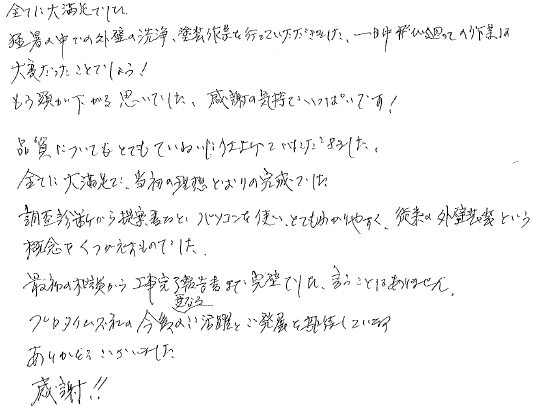 全てに大満足でした
猛暑の中での外壁の洗浄、塗装作業を行っていただきました、一日中飛び回っての作業は
大変だったことでしょう!
もう頭が下がる思いでした、感謝の気持でいっぱいです!
品質についてもとてもていねいに仕上げていただきました。
全てに大満足で、当初の理想どおりの完成でした
調査診断から提案書など、パソコンを使い、とてもわかりやすく、従来の外壁塗装という
概念をくつがえすものでした。
最初の相談から工事完了報告書まで完璧でした、言うことはありません。
プロタイムズ社の今後の更なるご活躍とご発展を期待しています
ありがとうございました
感謝!!